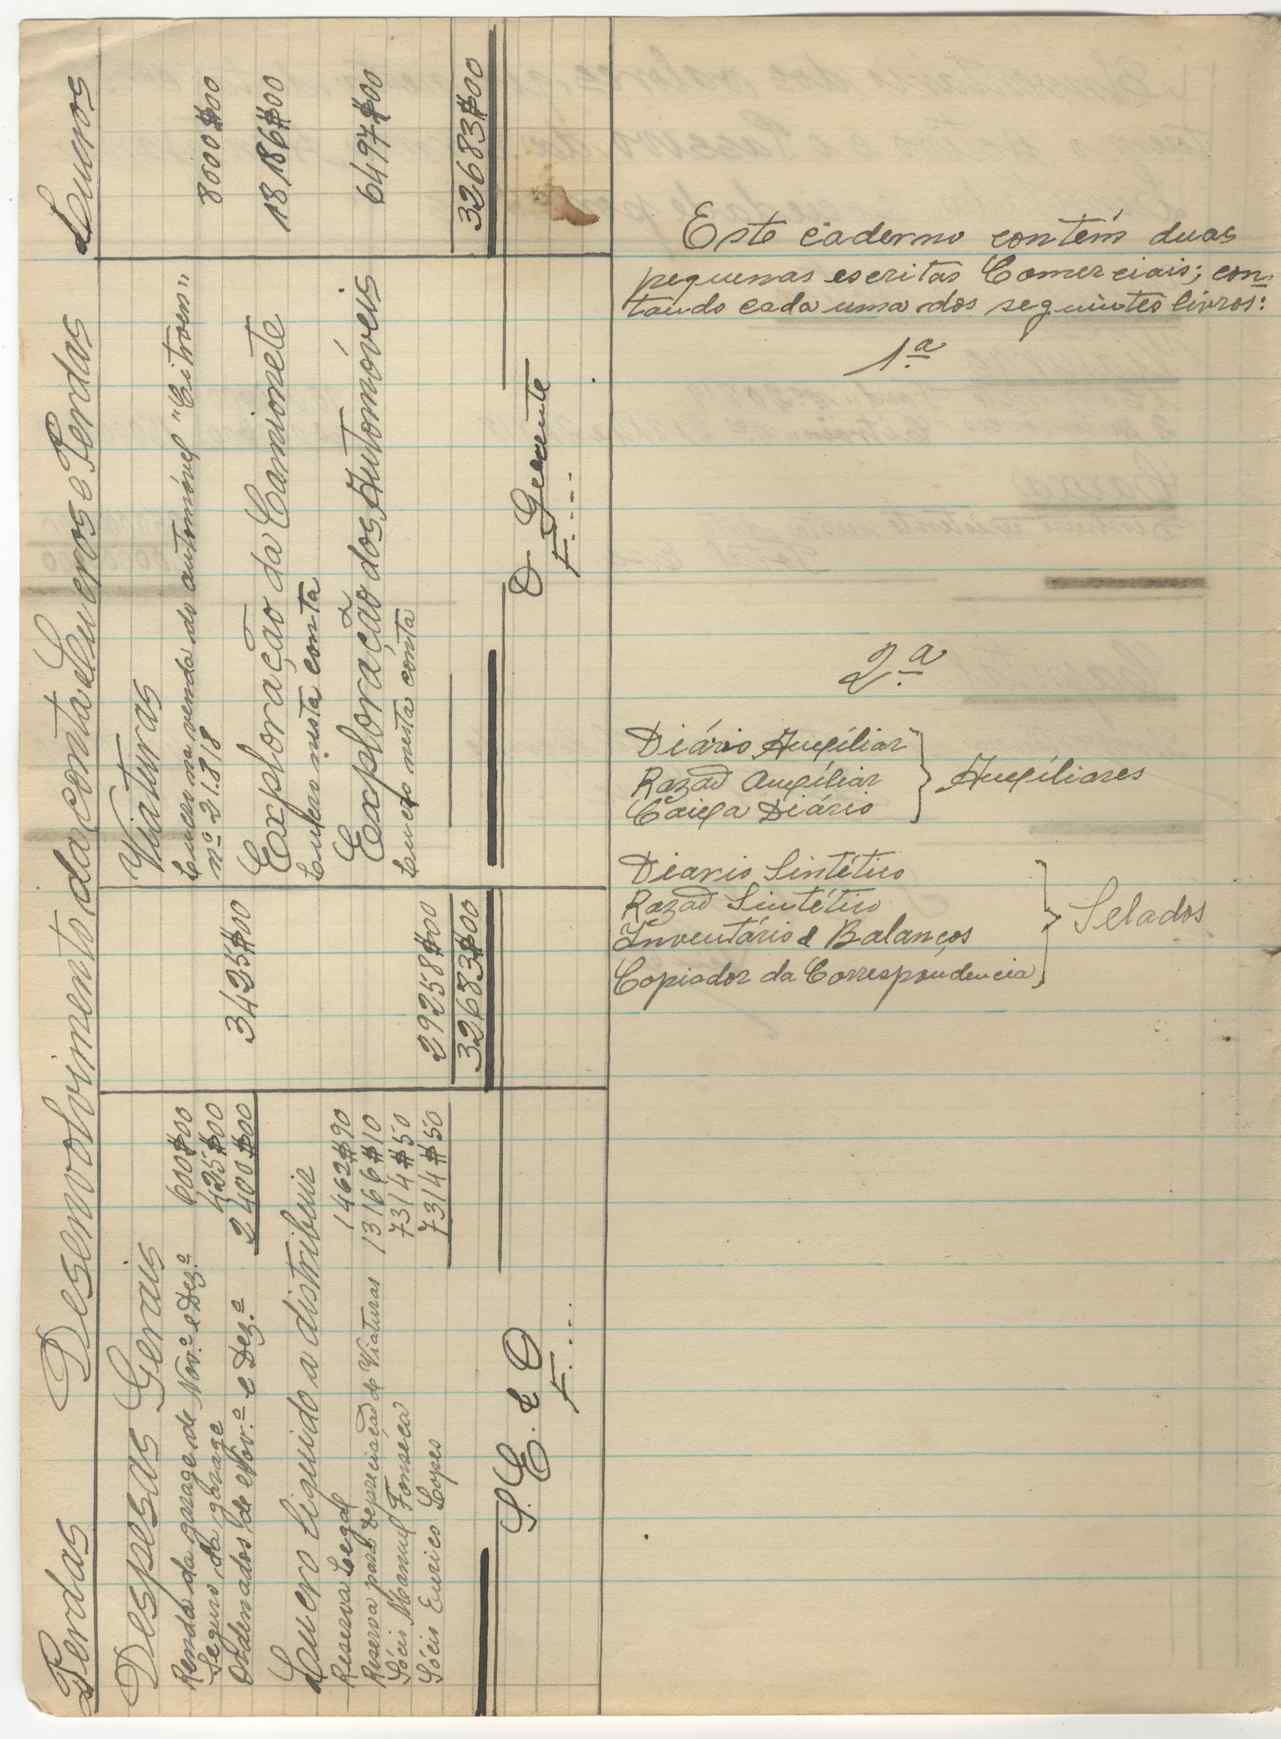 Perdas Desenvolvimento da conta Lucros e Perdas Lucros
Despesas Gerais
Renda da garage de Nov.º e Dez.º 600$00
Seguro da garage 425$00
Ordenados de Nov.º e Dez.º 2400$00 3425$00
Lucro liquido a distribuir
Reserva Legal 1462$90
Reserva para depreciação de Viaturas 13166$10
Sócio Manuel Fonseca 7314$50
Sócio Eurico Lopes 7314$50 29258$00
32683$00
S. E. e O
F....
Viaturas
Lucro na venda do automóvel "Citroen"
nº 21.818 8000$00
Exploração da Camionete
Lucro nesta conta 18.186$00
Exploração dos Automóveis
Lucro nesta conta 6497$00
32683$00
O Gerente
F....
Este caderno contém duas
pequenas escritas Comerciais; con-
tando cada uma dos seguintes livros:
1.ª
2.ª
Diário Auxíliar
Razaõ Auxíliar
Caixa Diário
Auxíliares
Diario Sintético
Razaõ Sintético
Inventário e Balanços
Copiador da Correspondencia
Selados